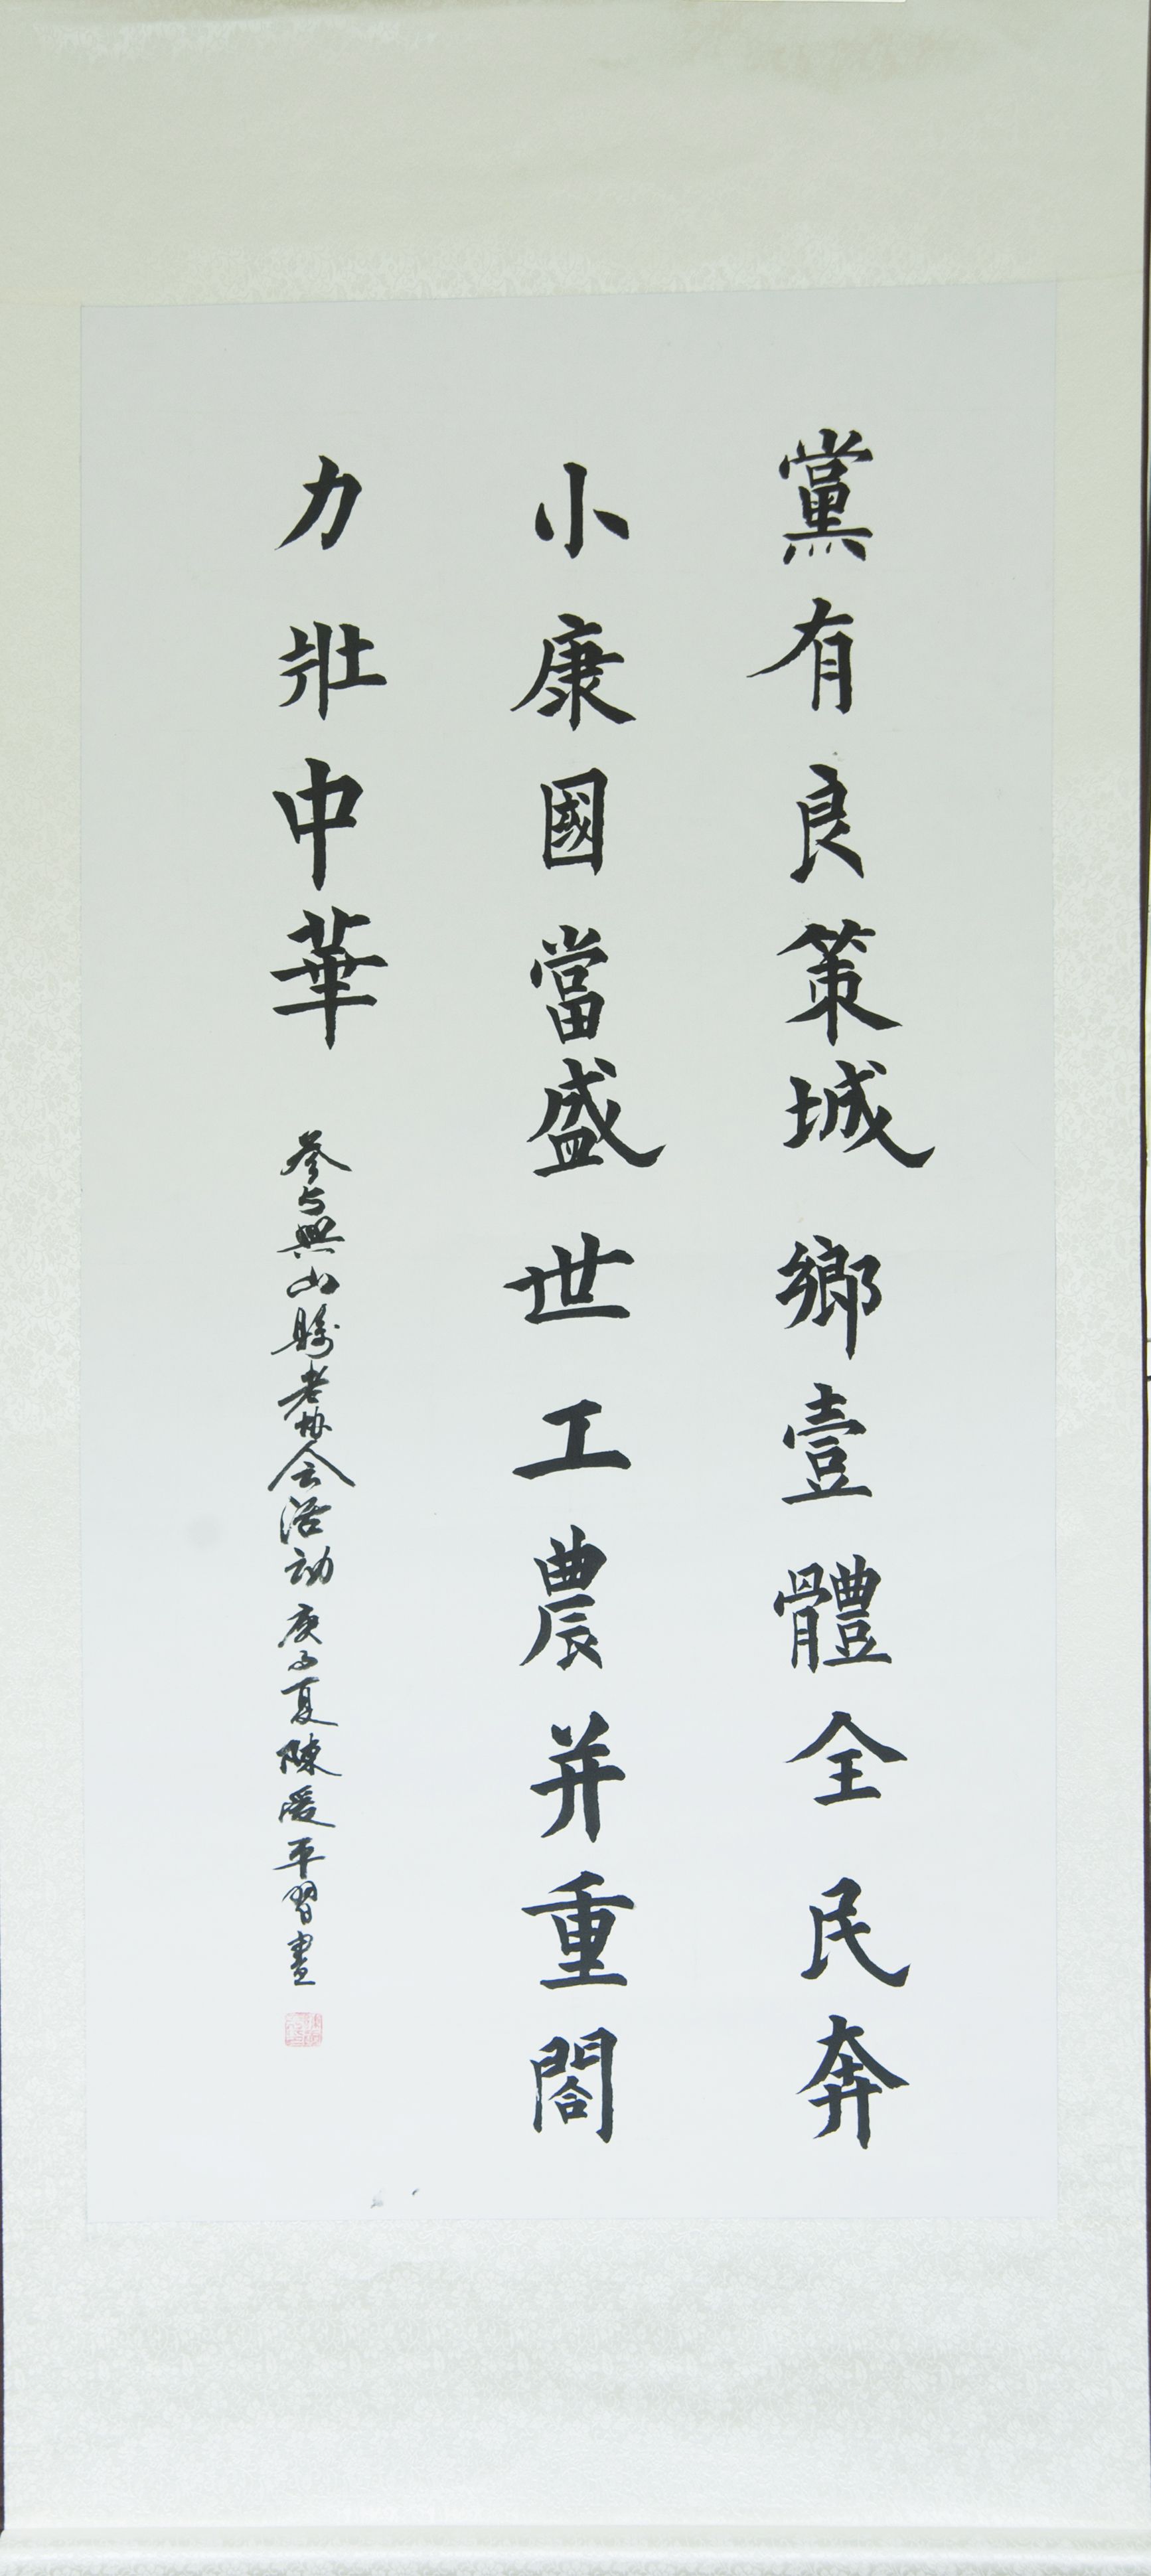 黨有良策城鄉壹體全民奔
小康國當盛世工農并重闔
力壯中華
參与興山縣老协会活动庚子夏陳爱平習書